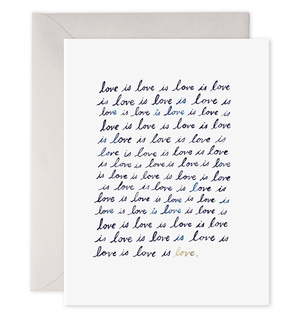 love is love is love is love is
is love is love is love is love
love is love is love is love is
love is love is love is love
is love is love is love is
love is love is love is love
is love is love is love is love
is love is love is love is love
is love is love is love is
love is love is love is love is
love is love is love is love
love is love is love is love
is love is love is love is love
love is love is love.